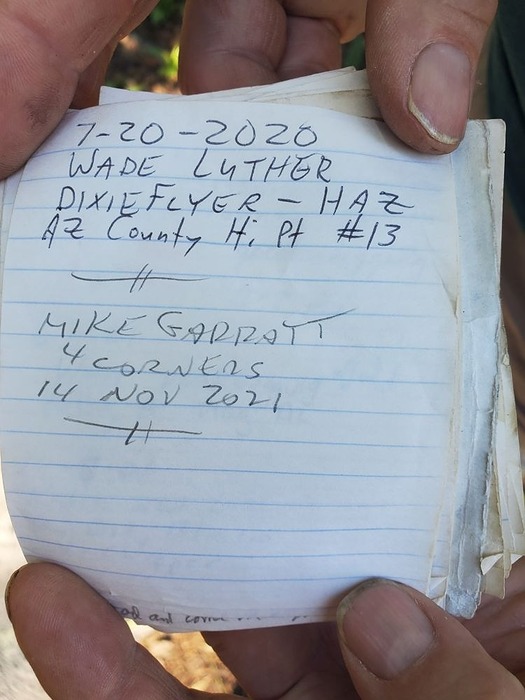 7-20-2020
WADE LUTHER
DIXIEFLYER - HAZ
AZ County Hi Pt #13
MIKE GARRATT
4 CORNERS
14 NOV 2021
and